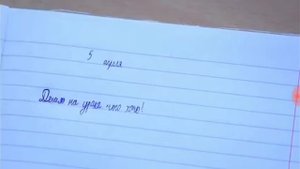 5
апреля
Делаю на уроке что хочу!